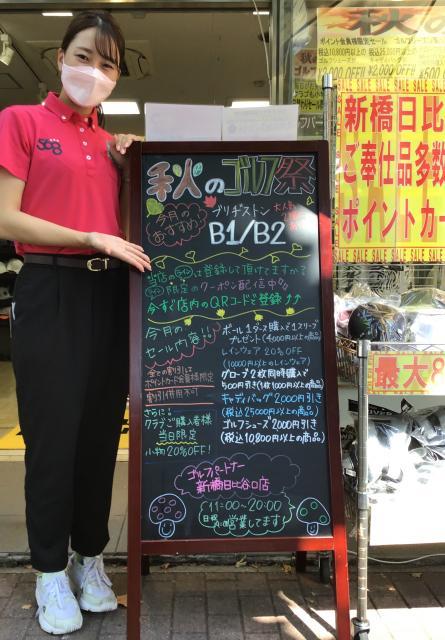 秋のゴルフ祭
今月の
おすすめ
ブリヂストン
B1/B2
大人気
当店のライン@は登録して頂けてますか?
ライン@限定のクーポン配信中
今すぐ店内のQRコードで登録↑↑
今月の
セール内容!!
全ての割引して
ポイントカード会員様限定
割引併用不可
さらに!
クラブご購入者様
当日限定
小物20%OFF!
ボール1ダース購入で1スリーブ
プレゼント(4000円以上の商品)
レインウェア 20% OFF
(10000円以上のレインウェア)
グローブ2枚同時購入で
500円引き(1枚1000円以上の商品)
キャディバッグ 2000円引き
(税込25000円以上の商品)
ゴルフシューズ 2000円引き
(税込10,800円以上の商品)
ゴルフパートナー
新橋日比谷口店
11:00〜20:00
営業してます!
秋の
ポイント会員様限定セール
ゴルフシューズ
¥2,000 OFF!!
¥500
SALE SALE SALE SALE SALE
新橋日比
ご奉仕品多数
ポイントカー
SALE SALE SALE SALE SALE
最大8